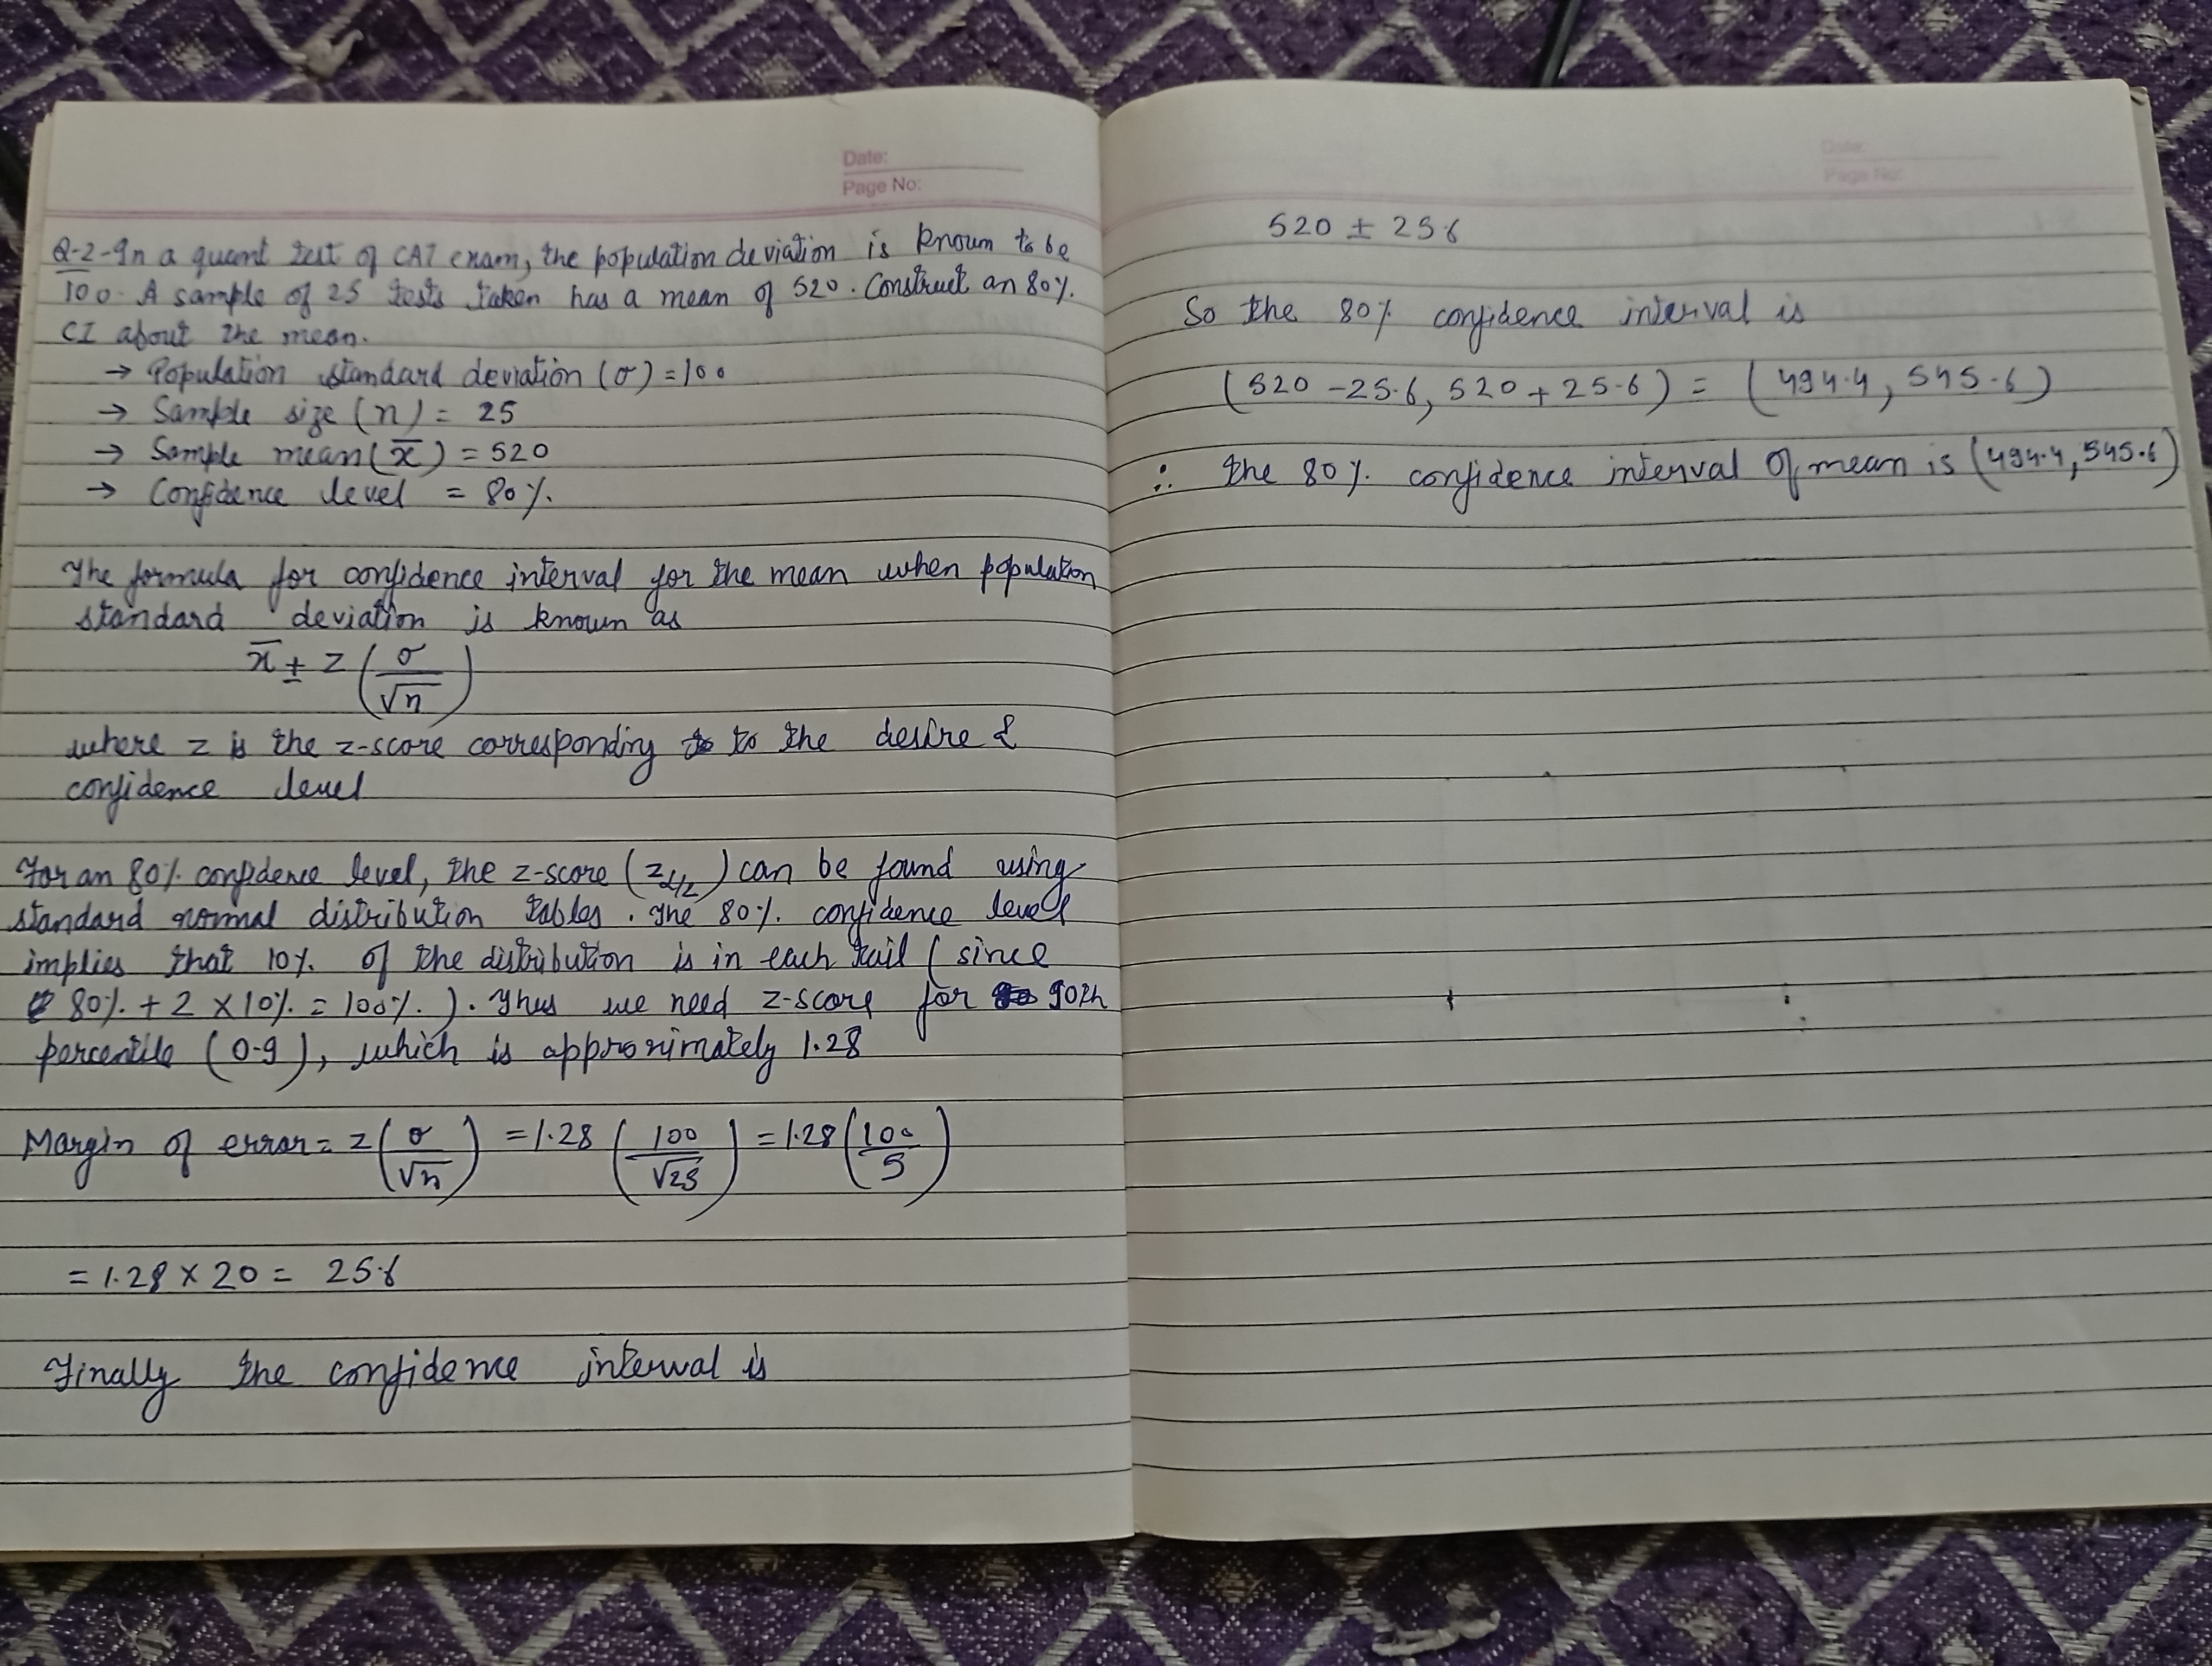 Date:
Page No:
Q-2-In a quant test of CAT exam, the population deviation is known to be
100. A sample of 25 tests taken has a mean of 520. Construct an 80%
CI about the mean.
→ Population standard deviation (σ) = 100
→ Sample size (n) = 25
→ Sample mean (x̄) = 520
→ Confidence level = 80%.
The formula for confidence interval for the mean when population
standard deviation is known as
x̄ ± z (σ/√n)
where z is the z-score corresponding to the desired
confidence level
For an 80% confidence level, the z-score (zα/2) can be found using
standard normal distribution tables. The 80% confidence level
implies that 10% of the distribution is in each tail (since
80% + 2 × 10% = 100%). Thus we need z-score for 90th
percentile (0.9), which is approximately 1.28
Margin of error = z (σ/√n) = 1.28 (100/√25) = 1.28 (100/5)
= 1.28 × 20 = 25.6
Finally the confidence interval is
Date:
Page No:
520 ± 25.6
So the 80% confidence interval is
(520 - 25.6, 520 + 25.6) = (494.4, 545.6)
∴ the 80% confidence interval of mean is (494.4, 545.6)